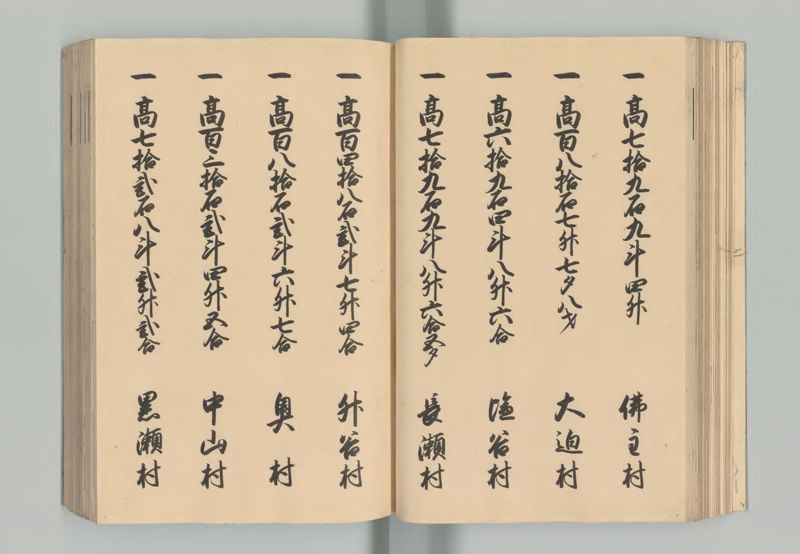 一 高七拾九石九斗四升 佛主村
一 高百八拾石七升七夕八才 大迫村
一 高六拾九石四斗八升六合 塩谷村
一 高七拾九石九斗八升六合五夕 長瀬村
一 高百四拾八石弐斗七升四合 舛谷村
一 高百八拾石弐斗六升七合 奥村
一 高百三拾石弐斗四升五合 中山村
一 高七拾弐石八斗弐升弐合 黒瀬村